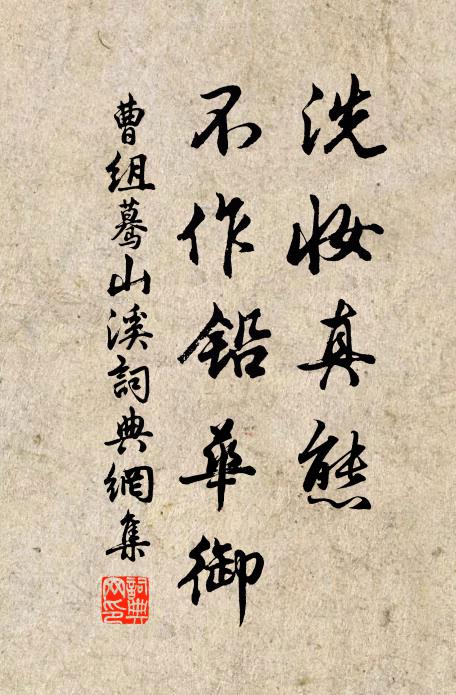 洗妝真態
不作鉛華御
曹組驀山溪詞典網集
詞典網印